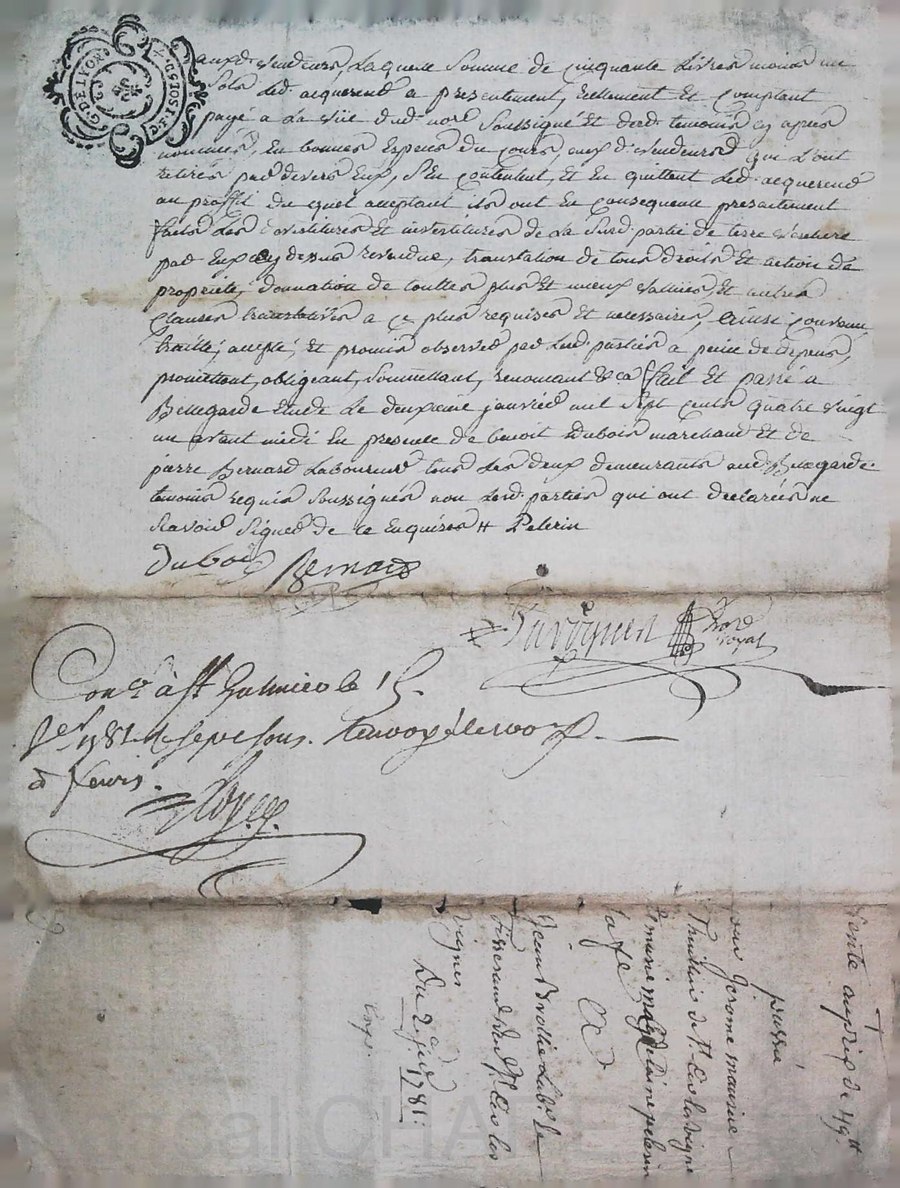 G. DE LYON
auxd. vendeurs, laquelle somme de cinquante livres moins un
sols led. acquereur a presentement, reellement et comptant
payé a la vüe dud. nore soussigné et desd. temoins cy apres
nommés, en bonnes especes du cours, auxd. vendeurs qui l'ont
retirés par devers eux, s'en contentent, et en quittent led. acquereur
au proffit du quel acceptant ils ont en consequence presentement
faits les devestitures et investitures de la susd. partie de terre
par eux cy dessus vendue, translation de tous droits et action de
propriété, donnation de touttes plus et mieux vallües et autres
clauses translatives a ce plus requises et necessaires, ainsi convenu
traitté, accepté, et promis observer par lesd. parties a peine de depens,
promettant, obligeant, soumettant, renoncant &ca fait et passé a
Bellegarde etude le deuxieme janvier mil sept cents quatre vingt
un avant midi en presence de benoit Dubois marchand et de
pierre Bernard laboureur tous les deux demeurants aud. Bellegarde
temoins requis soussignés non lesd. parties qui ont declarées ne
scavoir signer de ce enquises # Pelerin
Dubois Bernard
nore royal
Con.lé à St Galmier le 15
1781 R sept sous. Renvoyé le
à feurs.
vente au prix de 49 tt
passé
par Jerome
de St
marie magdelaine pelerin
sa fe
A
Jean lab.r
tisserand de St
vignes
Du 2 1781